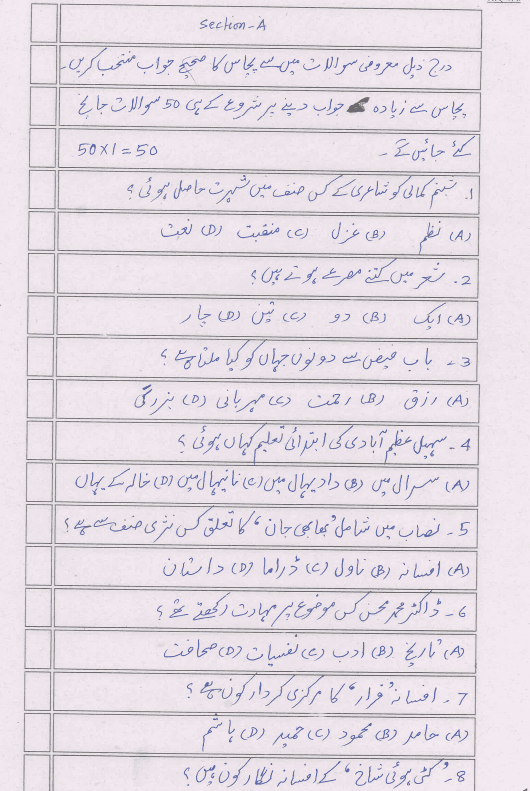 Section-A
درج ذیل معروضی سوالات میں سے پچاس کا صحیح جواب منتخب کریں۔
پچاس سے زیادہ جواب دینے پر شروع کے ہی 50 سوالات جانچے
کئے جائیں گے۔ 50x1=50
1. شبنم کمالی کو شاعری کے کس صنف میں شہرت حاصل ہوئی؟
(A) نظم (B) غزل (C) منقبت (D) نعت
2. شعر میں کتنے مصرعے ہوتے ہیں؟
(A) ایک (B) دو (C) تین (D) چار
3۔ باب فیض سے دونوں جہاں کو کیا ملتا ہے؟
(A) رزق (B) رحمت (C) مہربانی (D) بزرگی
4۔ سہیل عظیم آبادی کی ابتدائی تعلیم کہاں ہوئی؟
(A) سسرال میں (B) دادیہال میں (C) نانیہال میں (D) خالہ کے یہاں
5۔ نصاب میں شامل 'بھابھی جان' کا تعلق کس نثری صنف سے ہے؟
(A) افسانہ (B) ناول (C) ڈراما (D) داستان
6۔ ڈاکٹر محمد محسن کس موضوع پر مہارت رکھتے تھے؟
(A) تاریخ (B) ادب (C) نفسیات (D) صحافت
7۔ افسانہ 'فرار' کا مرکزی کردار کون ہے؟
(A) حامد (B) محمود (C) حمید (D) ہاشم
8۔ 'کٹی ہوئی شاخ' کے افسانہ نگار کون ہیں؟